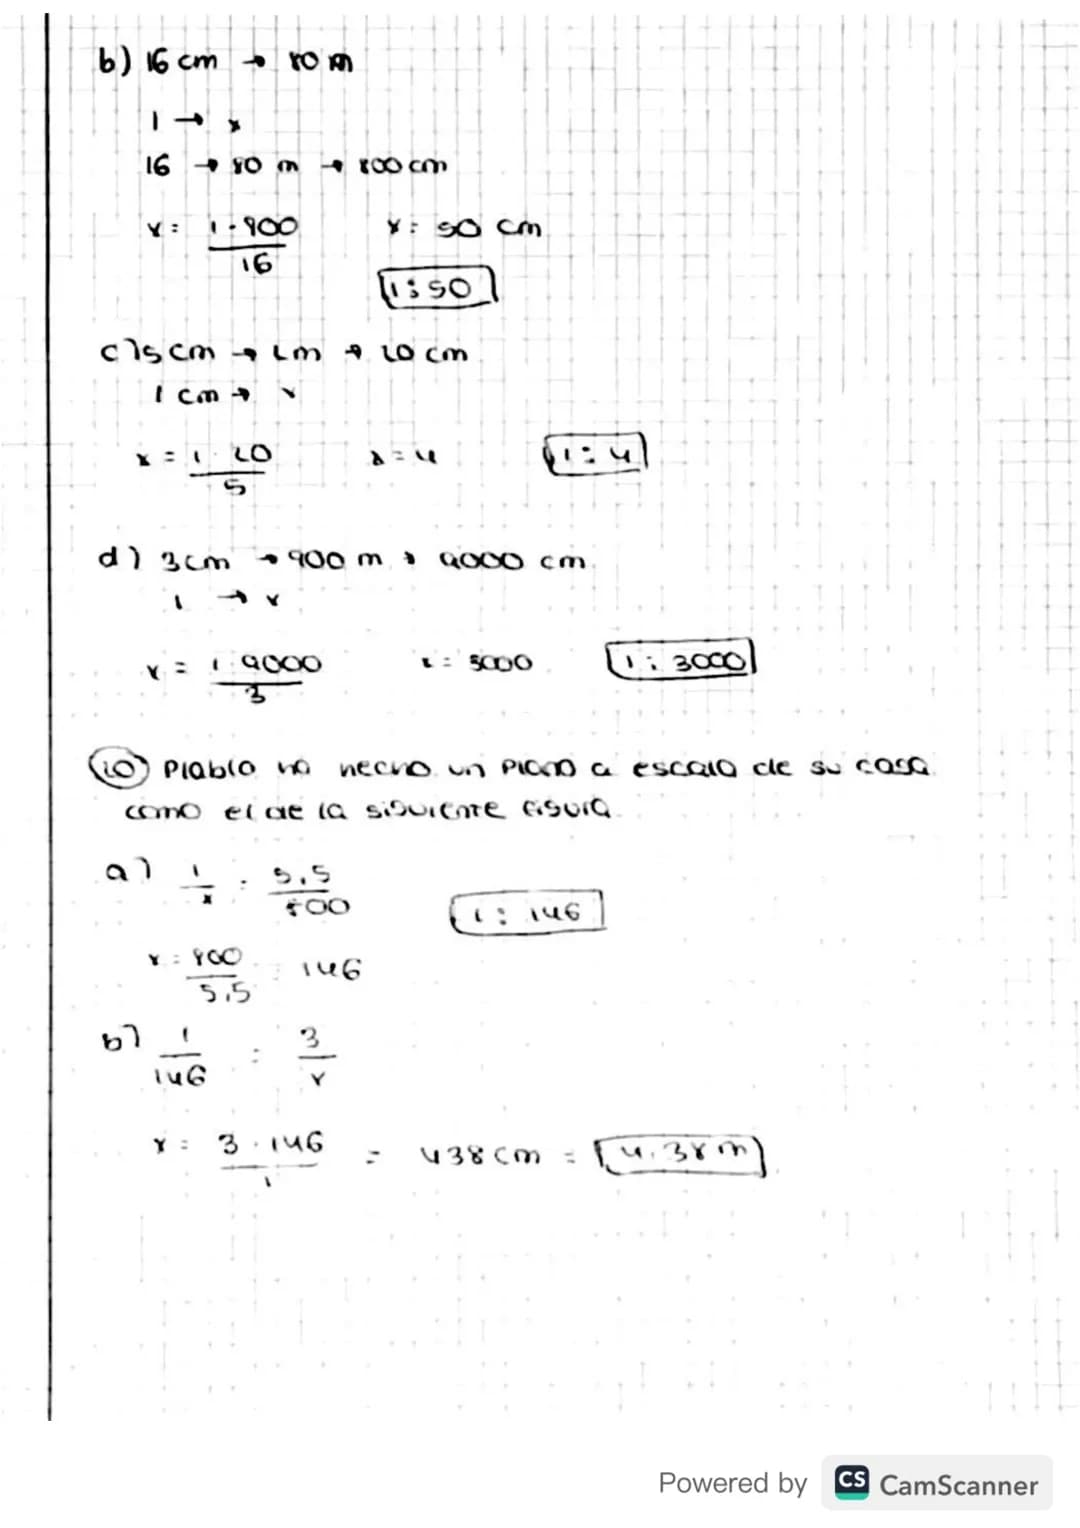 b) 16 cm → 80 m
1 → x
16 → 80 m → 800 cm
x = 1·800 / 16 x = 50 cm
1:50
c) 5 cm → 2m → 20 cm
1 cm → x
x = 1·20 / 5 x = 4 1:4
d) 3 cm → 900 m → 9000 cm
1 → x
x = 1·9000 / 3 x = 3000 1:3000
10) Plablo ha hecho un plano a escala de su casa
como el de la siguiente figura.
a) 1/x = 5,5/800
1:146
x = 800/5,5 = 146
b) 1/146 = 3/x
x = 3·146/1 = 438 cm = 4,38 m
Powered by CS CamScanner